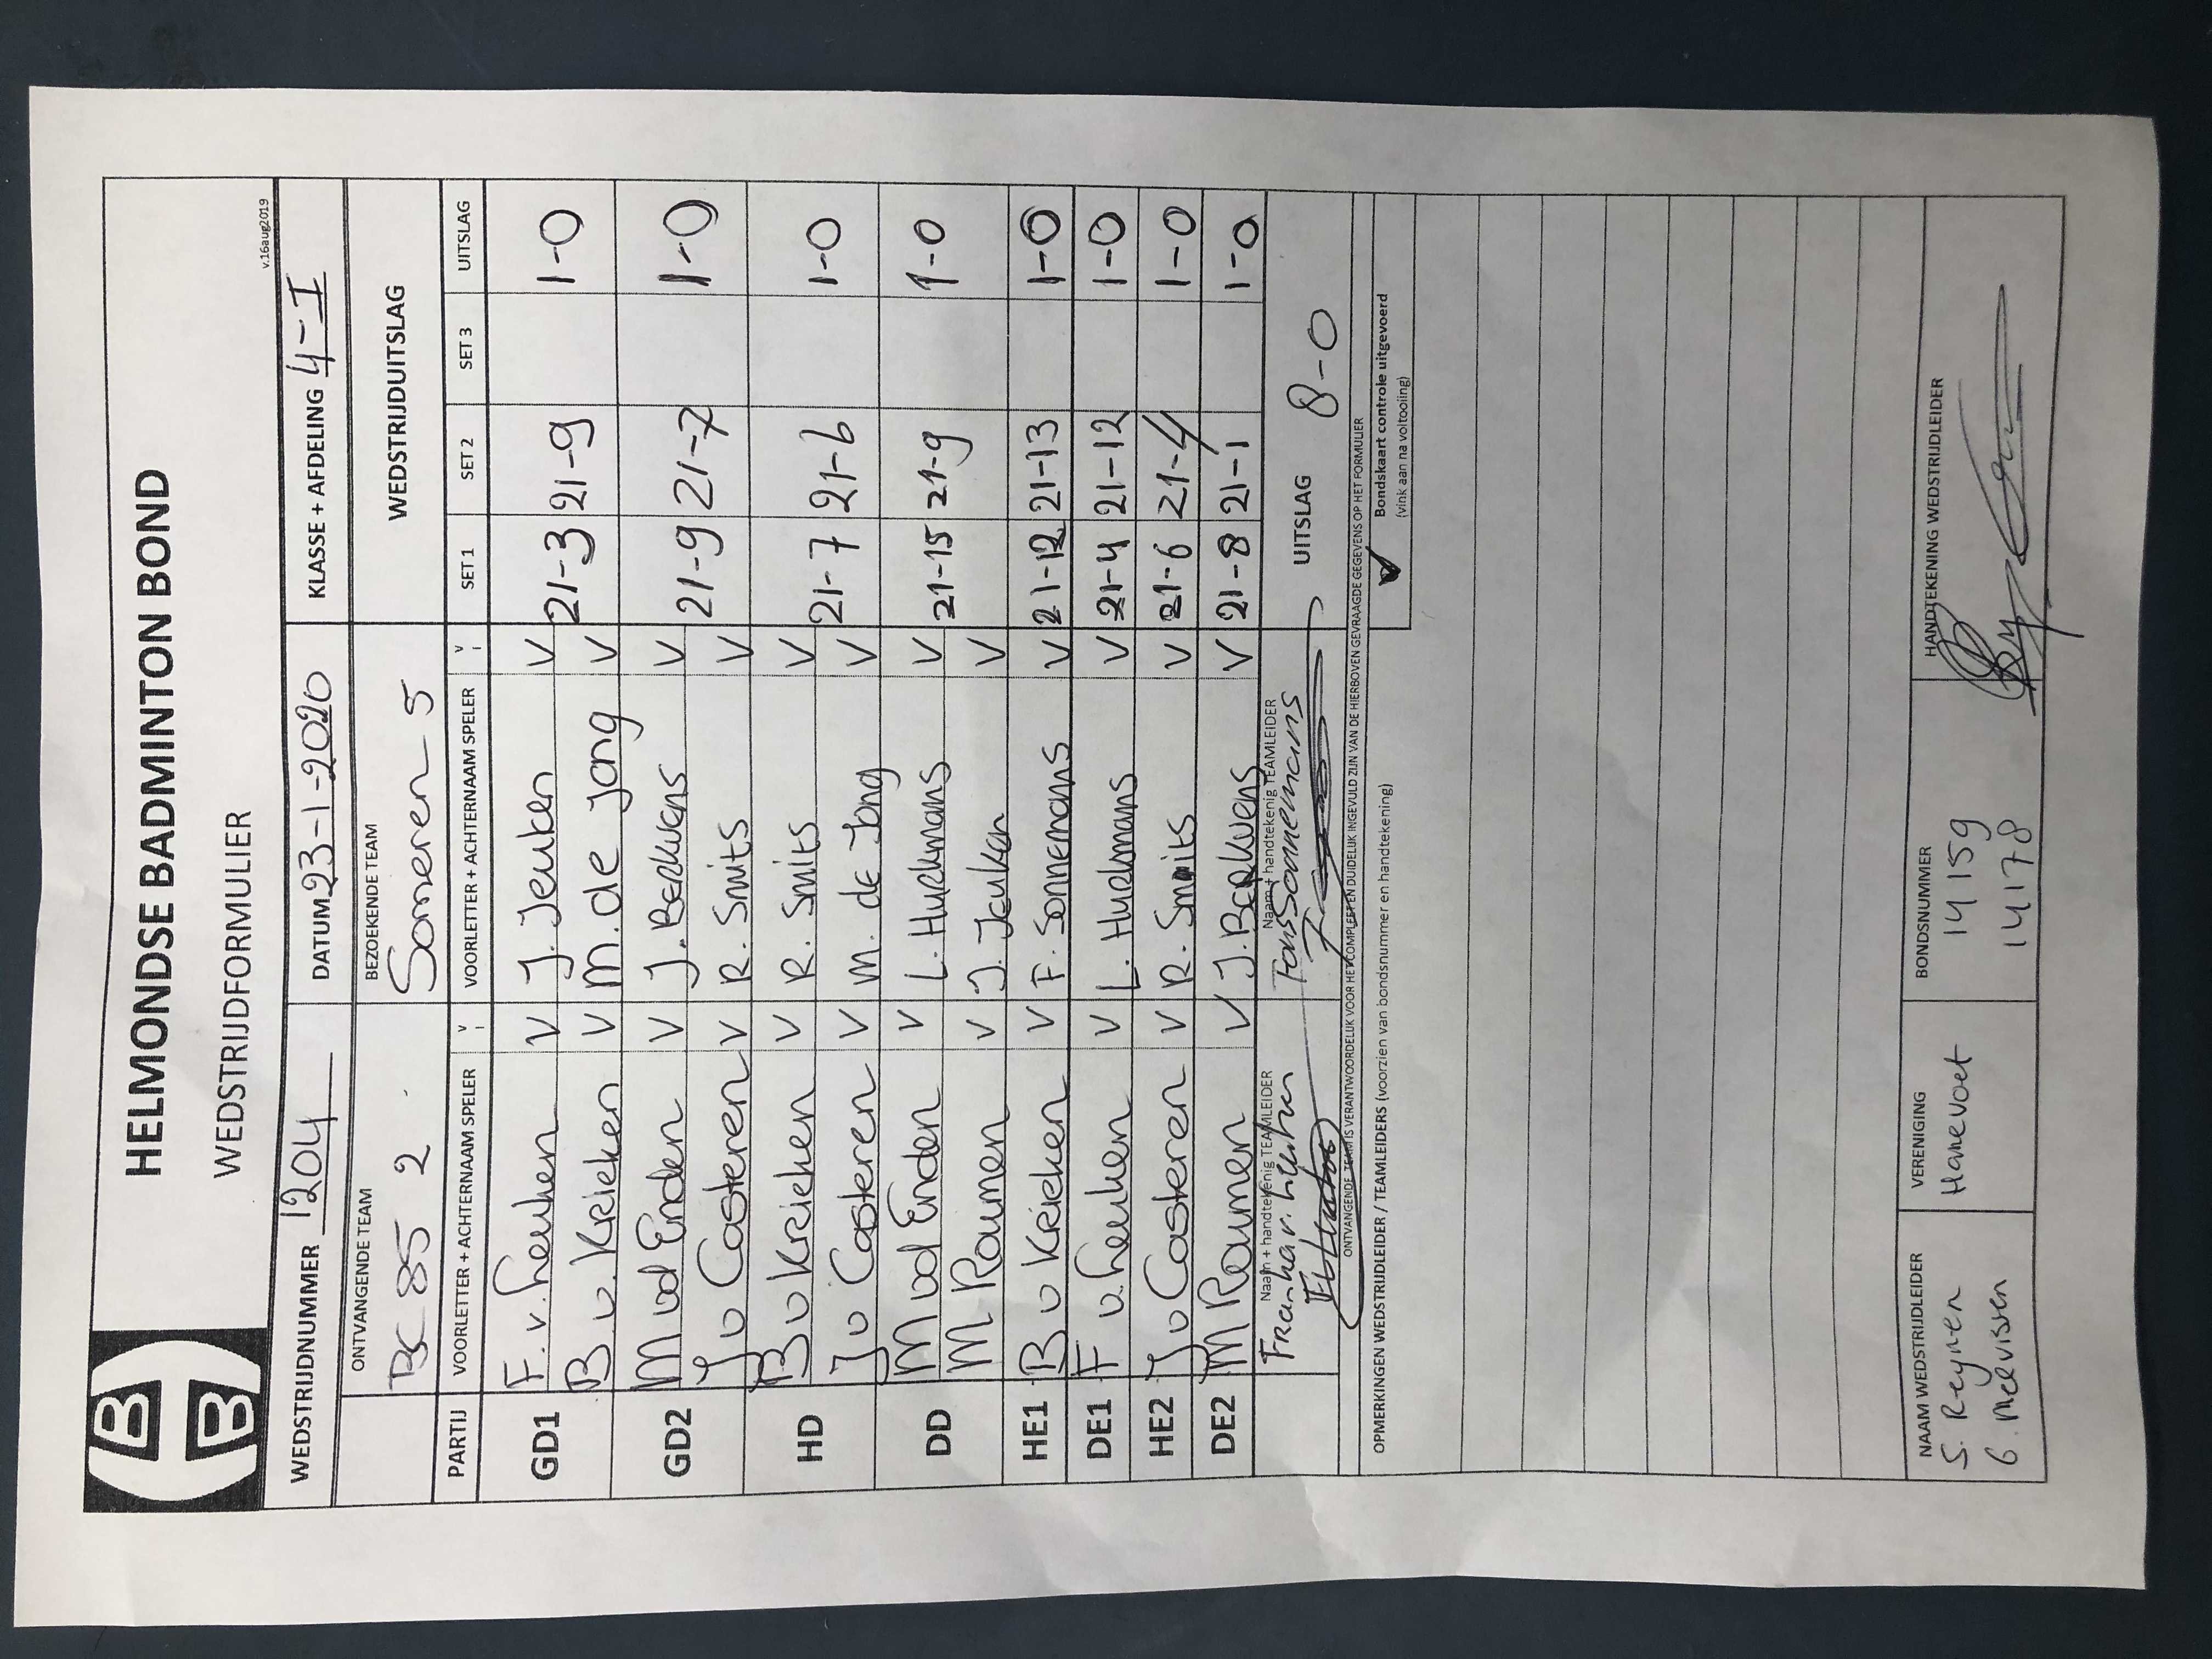 HELMONDSE BADMINTON BOND
WEDSTRIJDFORMULIER
v.16aug2019
WEDSTRIJDNUMMER 1204 DATUM 23-1-2020 KLASSE + AFDELING 4-I
ONTVANGENDE TEAM BEZOEKENDE TEAM WEDSTRIJDUITSLAG
BC 85 2 Someren 5
PARTIJ VOORLETTER + ACHTERNAAM SPELER V VOORLETTER + ACHTERNAAM SPELER V SET 1 SET 2 SET 3 UITSLAG
GD1 F. v. heuken V J. Jeuken V 21-3 21-9 1-0
B. v. Krieken V M. de Jong V
GD2 M vd Enden V J. Berkvens V 21-9 21-7 1-0
J v Casteren V R. Smits V
HD B v Krieken V R. Smits V 21-7 21-6 1-0
J v Casteren V M. de Jong V
DD M vd Enden V L. Hurkmans V 21-15 21-9 1-0
M Raumen V J. Jeuken V
HE1 B v Krieken V F. Sonnemans V 21-12 21-13 1-0
DE1 F v. heuken V L. Hurkmans V 21-4 21-12 1-0
HE2 J v Casteren V R. Smits V 21-6 21-4 1-0
DE2 M Raumen V J. Berkvens V 21-8 21-1 1-0
Naam + handtekenig TEAMLEIDER Naam + handtekenig TEAMLEIDER UITSLAG 8-0
Fons Sonnemans
ONTVANGENDE TEAM IS VERANTWOORDELIJK VOOR HET COMPLEET EN DUIDELIJK INGEVULD ZIJN VAN DE HIERBOVEN GEVRAAGDE GEGEVENS OP HET FORMULIER
OPMERKINGEN WEDSTRIJDLEIDER / TEAMLEIDERS (voorzien van bondsnummer en handtekening)
Bondskaart controle uitgevoerd
(vink aan na voltooiing)
NAAM WEDSTRIJDLEIDER VERENIGING BONDSNUMMER HANDTEKENING WEDSTRIJDLEIDER
S. Reynen Hanevoet 14159
G. Meelvissen 14178